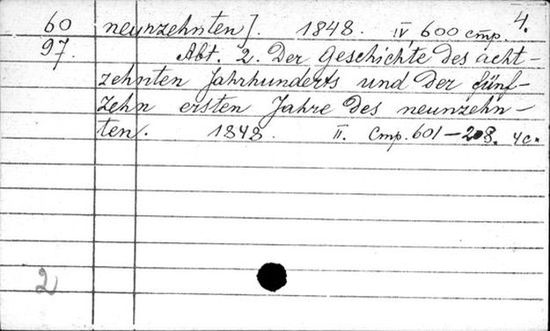 4.
60 neunzehnten]. 1848. IV 600 стр.
97. Abt. 2. Der Geschichte des acht-
zehnten Jahrhunderts und der fünf-
zehn ersten Jahre des neunzehn-
ten. 1848. II. Стр. 601–208. 4с.
2